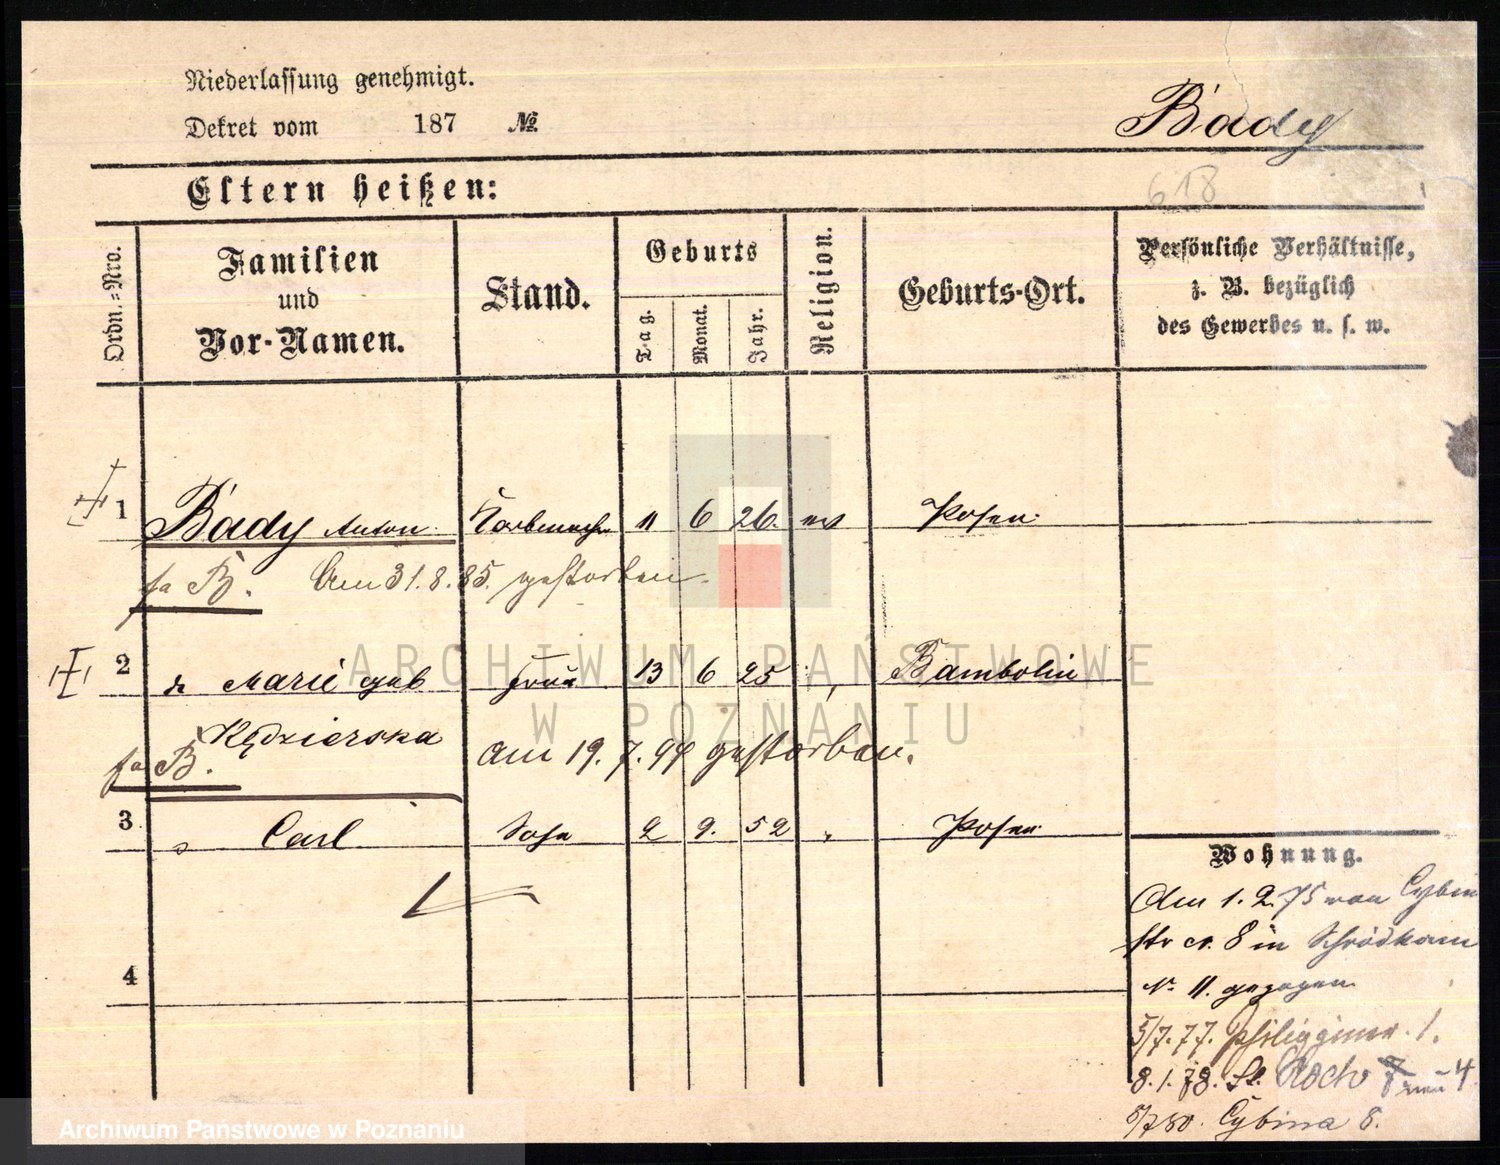 Niederlassung genehmigt.
Dekret vom 187 №
Bády
618
Eltern heißen:
Ordn.=Nro.
Familien
und
Vor-Namen.
Stand.
Geburts
Tag.
Monat.
Jahr.
Religion.
Geburts-Ort.
Persönliche Verhältnisse,
z. B. bezüglich
des Gewerbes u. s. w.
1 Bády Anton Korbmacher 11 6 26. Posen
B. Am 31.8.85. gestorben.
2 Marie geb Frau 13 6 25 Bambolin
Kędzierska
B. am 19.7.94 gestorben.
3 Carl Sohn 2 9. 52 Posen
4
Wohnung.
Am 1.2.75 von Cybina
str 8 in Schrödkam
N. 11. gezogen
5/7.77. 1.
8.1.78. St. Roch 4
5/7 80. Cybina 8.
ARCHIWUM PAŃSTWOWE
W POZNANIU
Archiwum Państwowe w Poznaniu